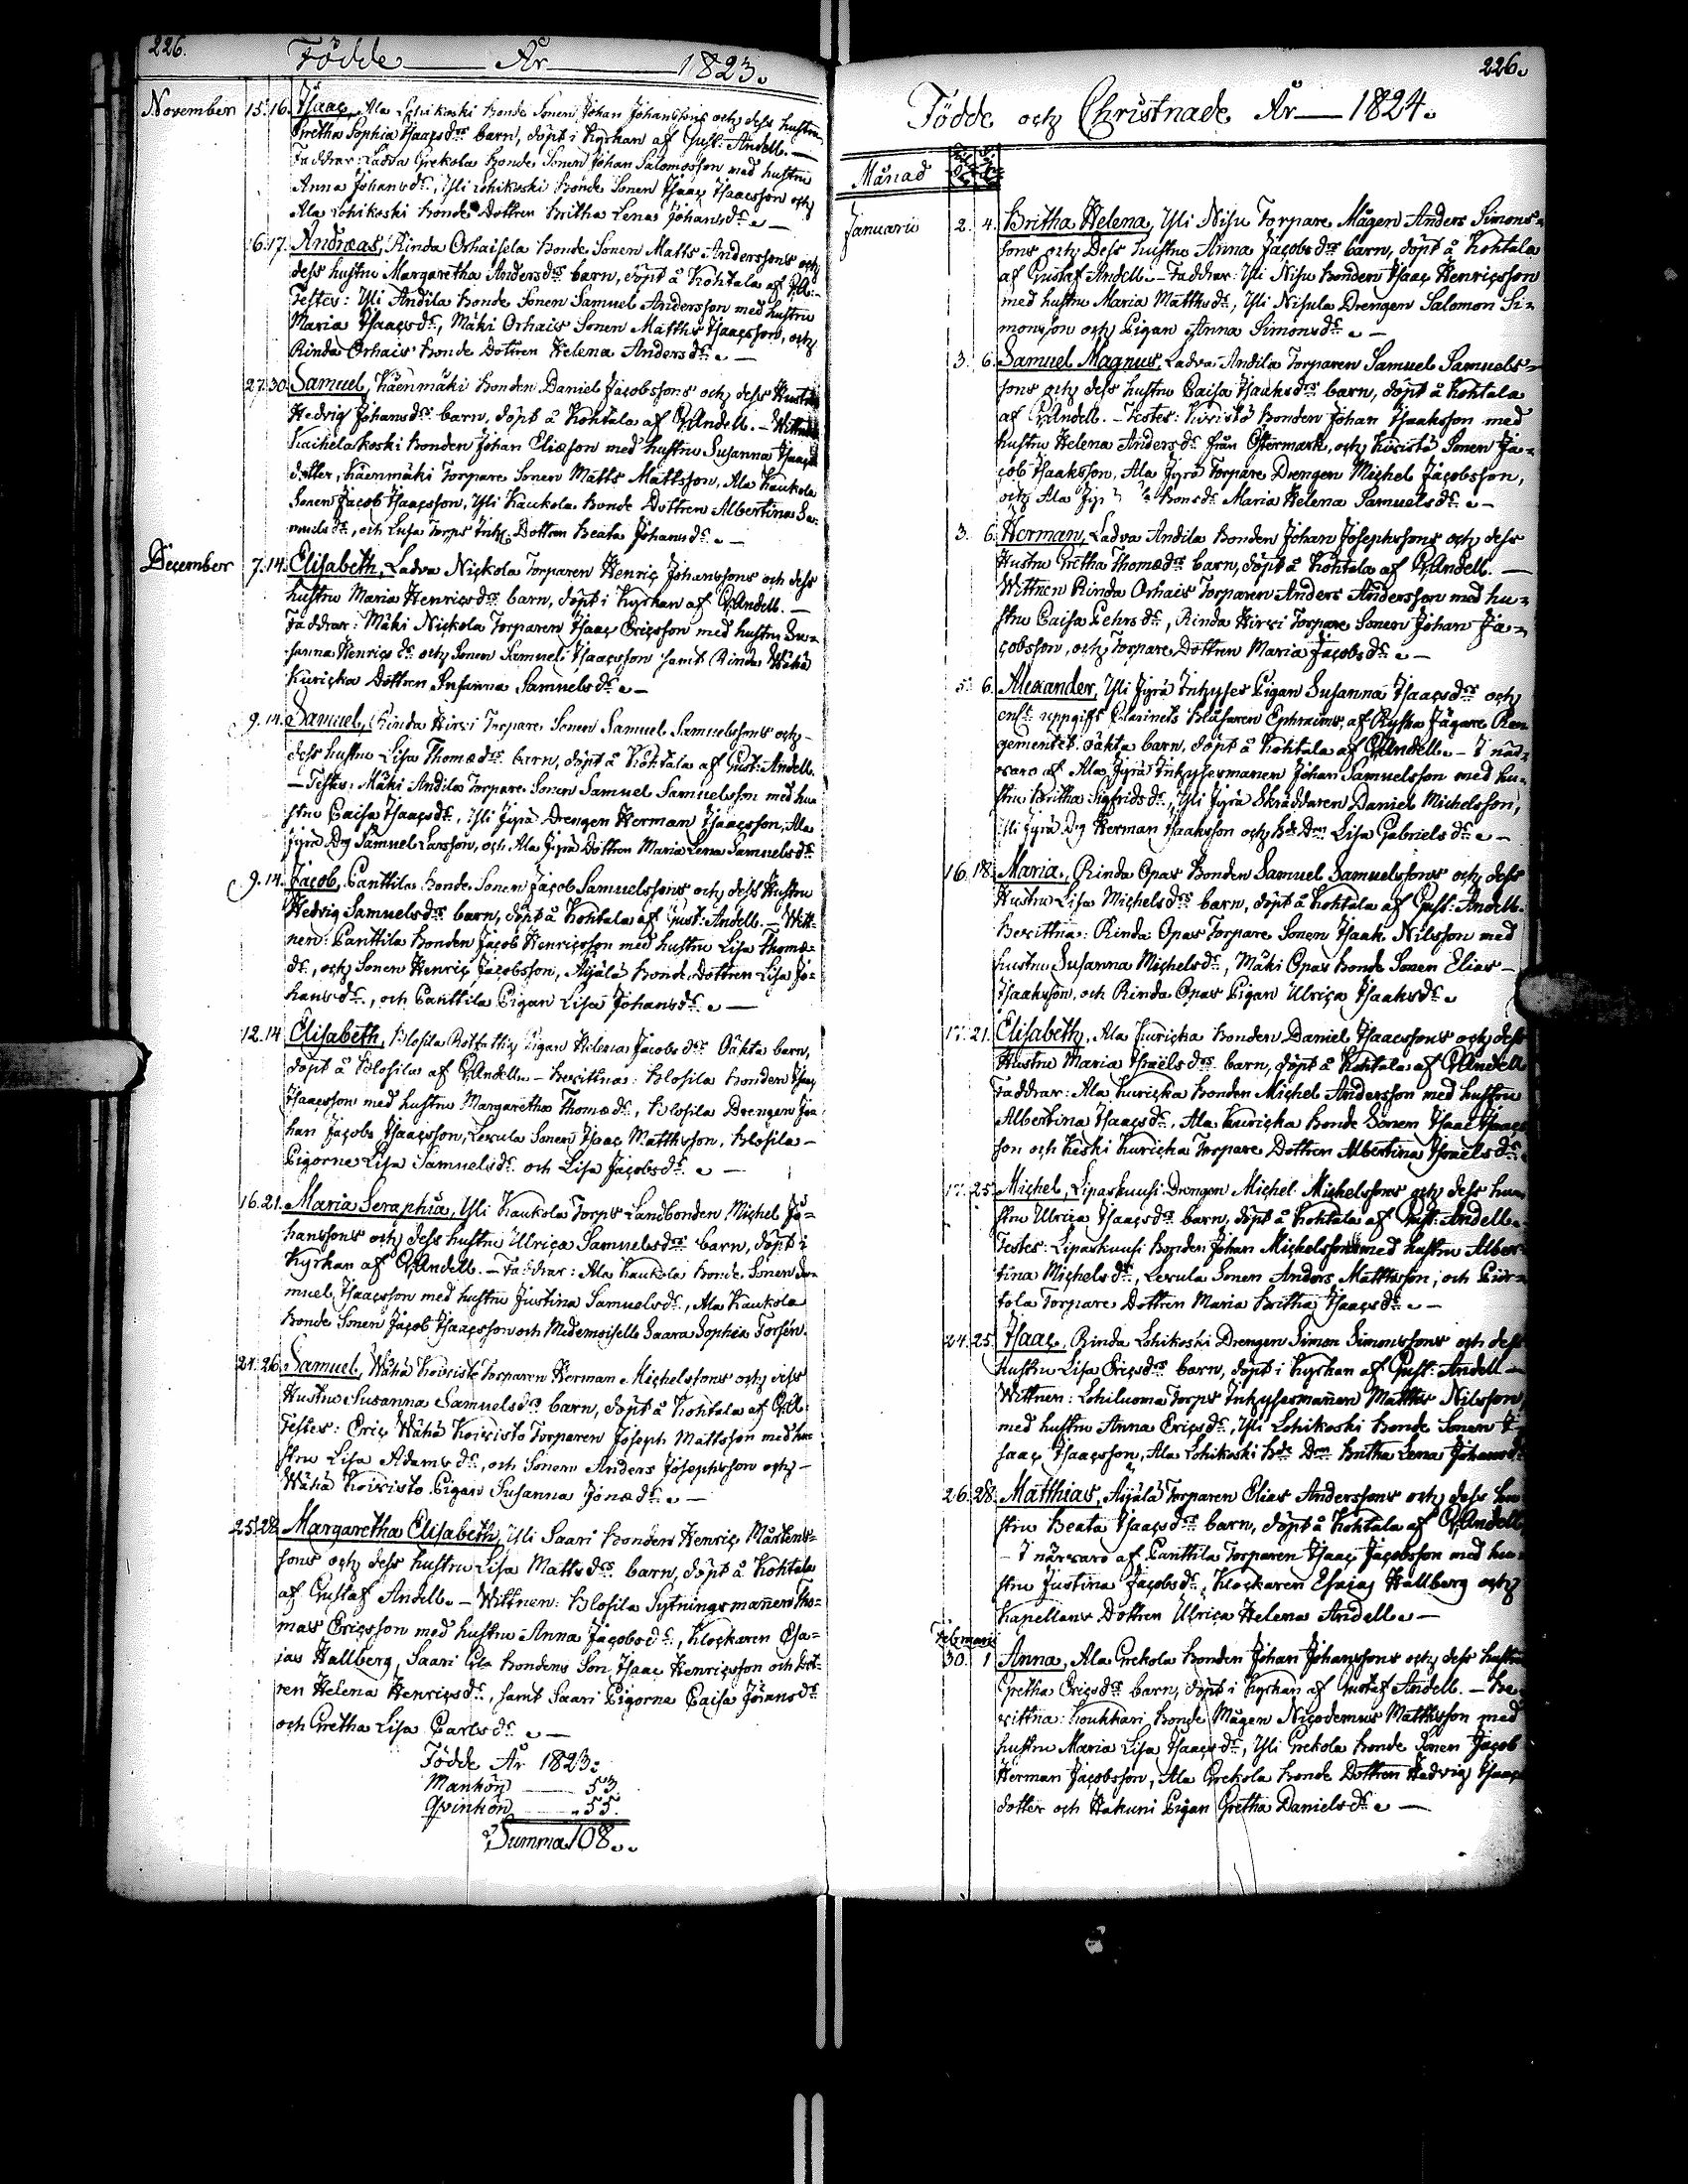 226.
Födde År 1823.
November 15. 16. Isaac, Ala Lohikoski Bonde Sonen Johan Johanssons och dess hustru
Gretha Sophia Isaacs drs barn, döpt i Kyrkan af Gust: Andell. —
Faddrar: Ladva Grekola Bonde Sonen Johan Salomosson med hustru
Anna Johans dr, Yli Lohikoski Bonde Sonen Isaac Isaacsson och
Ala Lohikoski Bonde Dottren Britha Lena Johans dr. —
16. 17. Andreas, Rinda Orhaisela Bonde Sonen Matts Anderssons och
dess hustru Margaretha Anders drs barn, döpt å Kohtala af G:A:
Testes: Yli Andila Bonde Sonen Samuel Andersson med hustru
Maria Isaacs dr, Mäki Orhais Sonen Matths Isaacsson, och
Rinda Orhais Bonde Dottren Helena Anders dr. —
27. 30. Samuel, Käenmäki Bonden Daniel Jacobssons och dess Hustru
Hedvig Johans drs barn, döpt å Kohtala af G:Andell. —
Kaihelakoski Bonden Johan Eliæson med hustru Susanna Isaacs
dotter, Käenmäki Torpare Sonen Matts Mattsson, Ala Kaukola
Sonen Jacob Isaacsson, Yli Kaukola Bonde Dottren Albertina Sa-
muels dr, och Lusa Torps Inhy: Dottren Beata Johans dr. —
December 7. 14. Elisabeth, Ladva Nickola Torparen Henric Johanssons och dess
hustru Maria Henrics drs barn, döpt i Kyrkan af G:Andell. —
Faddrar: Mäki Nickola Torparen Isaac Ericsson med hustru Su-
sanna Henrics dr och Sonen Samuel Isaacsson samt Rinda Wähä
Kuricka Dottren Susanna Samuels dr. —
9. 14. Samuel, Rinda Hirsi Torpare Sonen Samuel Samuelssons och
dess hustru Lisa Thomæ drs barn, döpt å Kohtala af Gust: Andell.
— Testes: Mäki Andila Torpare Sonen Samuel Samuelsson med hu-
stru Caisa Isaacs dr, Yli Jyrä Drengen Herman Isaacsson, Ala
Jyrä Dg Samuel Larsson, och Ala Jyrä Dottren Maria Lena Samuels dr.
9. 14. Jacob, Panttila Bonde Sonen Jacob Samuelssons och dess Hustru
Hedvig Samuels drs barn, döpt å Kohtala af Gust: Andell. — Witt-
nen: Panttila Bonden Jacob Henricsson med hustru Lisa Thomæ
dr, och Sonen Henric Jacobsson, Äijälä Bonde Dottren Lisa Jo-
hans dr, och Panttila Pigan Lisa Johans dr. —
12. 14. Elisabeth, Blosila Pigan Helena Jacobs drs Oäkta barn,
döpt å Blosila af G:Andell. — Bevittna: Blosila Bonden Isaac
Isaacsson med hustru Margaretha Thomæ dr, Blosila Drengen Jo-
han Jacobs Isaacsson, Lexula Sonen Isaac Matthsson, Blosila —
Pigorne Lisa Samuels dr och Lisa Jacobs dr. —
16. 21. Maria Seraphia, Yli Kaukola Torps Landbonden Michel Jo-
hanssons och dess hustru Ulrica Samuels drs barn, döpt i
Kyrkan af G:Andell. — Faddrar: Ala Kaukola Bonde Sonen Sa-
muel Isaacsson med hustru Justina Samuels dr, Ala Kaukola
Bonde Sonen Jacob Isaacsson och Mademoiselle Saara Sophia Forsén.
24. 26. Samuel, Wähä Koivisto Torparen Herman Michelssons och dess
Hustru Susanna Samuels drs barn, döpt å Kohtala af G:A
Testes: Eric Wähä Koivisto Torparen Joseph Mattsson med hu-
stru Lisa Adams dr, och Sonen Anders Josephsson och —
Wähä Koivisto Pigan Susanna Jonæ dr. —
25. 28. Margaretha Elisabeth, Yli Saari Bonden Henric Mårtens-
sons och dess hustru Lisa Matts drs barn, döpt å Kohtala
af Gustaf Andell. — Wittnen: Blosila Sytningsmannen Tho-
mas Ericsson med hustru Anna Jacobs dr, Klockaren Esa-
ias Hallberg, Saari Bondens Son Isaac Henricsson och Dot-
ren Helena Henrics dr, samt Saari Pigorne Caisa Jörans dr
och Gretha Lisa Carls dr. —
Födde År 1823:
Mankön 53.
Qvinkön 55.
Summa 108.
226.
Födde och Christnade År 1824.
Månad
Januarii 2. 4. Britha Helena, Yli Nisu Torpare Mågen Anders Simons-
sons och Dess hustru Anna Jacobs drs barn, döpt å Kohtala
af Gustaf Andell. — Faddrar: Yli Nisu Bonden Isaac Henricsson
med hustru Maria Matths dr, Yli Nisula Drengen Salomon Si-
monsson och Pigan Anna Simons dr. —
3. 6. Samuel Magnus, Ladva Andila Torparen Samuel Samuels-
sons och dess hustru Caisa Isaaks drs barn, döpt å Kohtala
af G:Andell. — Testes: Koivistö Bonden Johan Isaaksson med
hustru Helena Anders dr från Östermark, och Koivistö Sonen Ja-
cob Isaaksson, Ala Jyrä Torpare Drengen Michel Jacobsson,
och Ala Maria Helena Samuels dr. —
3. 6. Herman, Ladva Andila Bonden Johan Josephssons och dess
Hustru Gretha Thomæ drs barn, döpt å Kohtala af G:Andell. —
Wittnen Rinda Orhais Torparen Anders Andersson med hu-
stru Caisa Pehrs dr, Rinda Hirsi Torpare Sonen Johan Ja-
cobsson, och Torpare Dottren Maria Jacobs dr. —
5. 6. Alexander, Yli Jyrä Inhyses Pigan Susanna Isaacs drs och
enlt uppgift Clarinets Blåsaren Ephraims, af Ryska Jägare Re-
gementet oäkta barn, döpt å Kohtala af G:Andell. — I när-
varo af Ala Jyrä Inhysesmannen Johan Samuelsson med hu-
stru Britha Sigfrids dr, Yli Jyrä Skräddaren Daniel Michelsson,
Yli Jyrä Dg Herman Isaaksson och Bde Drn Lisa Gabriels dr. —
16. 18. Maria, Rinda Opas Bonden Samuel Samuelssons och dess
Hustru Lisa Michels drs barn, döpt å Kohtala af Gust: Andell.
Bevittna: Rinda Opas Torpare Sonen Isaak Nilsson med
hustru Susanna Michels dr, Mäki Opas Bonde Sonen Elias —
Isaaksson, och Rinda Opas Pigan Ulrica Isaaks dr.
17. 21. Elisabeth, Ala Kuricka Bonden Daniel Isaacssons och dess
Hustru Maria Israels drs barn, döpt å Kohtala af G:Andell
Faddrar: Ala Kuricka Bonden Michel Andersson med hustru
Albertina Isaacs dr, Ala Kuricka Bonde Sonen Isaac Isaacs-
son och Keski Kuricka Torpare Dottren Albertina Israels dr.
17. 25. Michel, Lipaskuusi Drengen Michel Michelssons och dess hu-
stru Ulrica Isaacs drs barn, döpt å Kohtala af Gust: Andell.
Testes: Lipaskuusi Bonden Johan Michelsson med hustru Alber-
tina Michels dr, Lexula Sonen Anders Matthsson, och Piir-
tola Torpare Dottren Maria Britha Isaacs dr. —
24. 25. Isaac, Rinda Lohikoski Drengen Simon Simonssons och dess
Hustru Lisa Erics drs barn, döpt i Kyrkan af Gust: Andell —
Wittnen: Lohiluoma Torps Inhysesmannen Matths Nilsson
med hustru Anna Erics dr, Yli Lohikoski Bonde Sonen I-
saac Isaacsson, Ala Lohikoski Bde Drn Britha Lena Johans dr
26. 28. Matthias, Äijälä Torparen Elias Anderssons och dess hu-
stru Beata Isaacs drs barn, döpt å Kohtala af G:Andell
— I närvaro af Panttila Torparen Isaac Jacobsson med hu-
stru Justina Jacobs dr, Klockaren Esajas Hallberg och
Kapellans Dottren Ulrica Helena Andell. —
Februarii
30. 1 Anna, Ala Grekola Bonden Johan Johanssons och dess hustru
Gretha Erics drs barn, döpt i Kyrkan af Gustaf Andell. — Be-
vittna: Louhkari Bonde Mågen Nicodemus Matthsson med
hustru Maria Lisa Isaacs dr, Yli Grekola Bonde Sonen Jacob
Herman Jacobsson, Ala Grekola Bonde Dottren Hedvig Isaacs
dotter och Hakuni Pigan Gretha Daniels dr. —